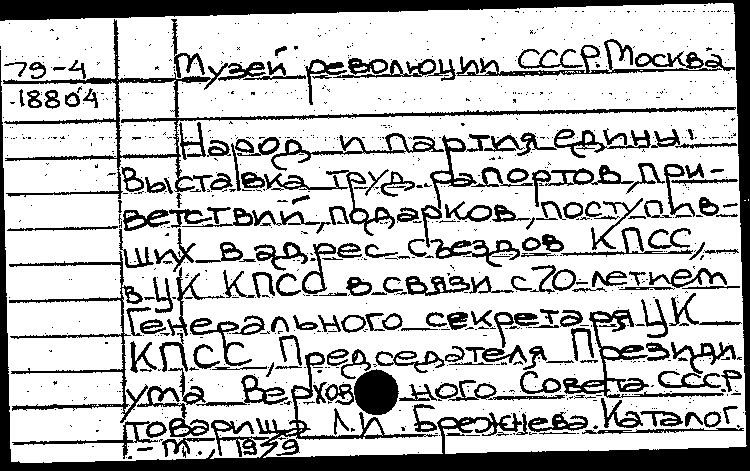 79-4 Музей революции СССР. Москва
18804
Народ и партия едины:
Выставка труд. рапортов, при-
ветствий, подарков, поступив-
ших в адрес съездов КПСС,
в ЦК КПСС в связи с 70-летием
Генерального секретаря ЦК
КПСС, Председателя Президи
ума Верховного Совета СССР
товарища Л.И. Брежнева. Каталог.
- М., 1979